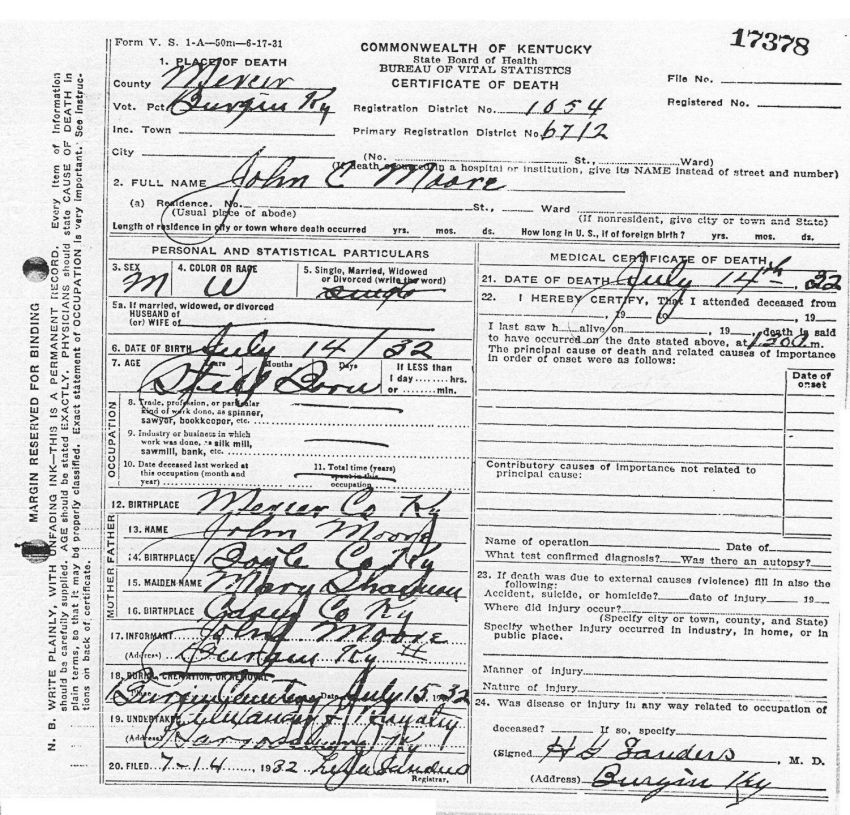 Form V. S. 1-A—50m—6-17-31
17378
COMMONWEALTH OF KENTUCKY
State Board of Health
BUREAU OF VITAL STATISTICS
CERTIFICATE OF DEATH
1. PLACE OF DEATH
County Mercer
Vot. Pct. Burgin Ky
Inc. Town
City
Registration District No. 1054
Primary Registration District No. 6712
File No.
Registered No.
(No. St., Ward)
(If death occurred in a hospital or institution, give its NAME instead of street and number)
2. FULL NAME John C Moore
(a) Residence. No. St., Ward
(Usual place of abode) (If nonresident, give city or town and State)
Length of residence in city or town where death occurred yrs. mos. ds. How long in U. S., if of foreign birth? yrs. mos. ds.
PERSONAL AND STATISTICAL PARTICULARS
3. SEX M 4. COLOR OR RACE W 5. Single, Married, Widowed or Divorced (write the word) single
5a. If married, widowed, or divorced
HUSBAND of
(or) WIFE of
6. DATE OF BIRTH July 14/32
7. AGE Years Months Days If LESS than
1 day hrs.
or min.
Still Born
OCCUPATION
8. Trade, profession, or particular
kind of work done, as spinner,
sawyor, bookkeeper, etc.
9. Industry or business in which
work was done, as silk mill,
sawmill, bank, etc.
10. Date deceased last worked at
this occupation (month and
year)
11. Total time (years)
spent in this
occupation
12. BIRTHPLACE Mercer Co Ky
FATHER
13. NAME John Moore
14. BIRTHPLACE Boyle Co Ky
MOTHER
15. MAIDEN NAME Mary
16. BIRTHPLACE Casey Co Ky
17. INFORMANT John Moore
(Address) Burgin Ky
18. BURIAL, CREMATION, OR REMOVAL
Place Burgin Cemetery Date July 15-32
19. UNDERTAKER
(Address) Harrodsburg Ky
20. FILED 7-14, 1932 Sanders
Registrar.
MEDICAL CERTIFICATE OF DEATH
21. DATE OF DEATH July 14th, 32
22. I HEREBY CERTIFY, That I attended deceased from
, 19 to , 19
I last saw h alive on , 19 , death is said
to have occurred on the date stated above, at m.
The principal cause of death and related causes of importance
in order of onset were as follows:
Date of
onset
Contributory causes of importance not related to
principal cause:
Name of operation Date of
What test confirmed diagnosis? Was there an autopsy?
23. If death was due to external causes (violence) fill in also the
following:
Accident, suicide, or homicide? date of injury 19
Where did injury occur?
(Specify city or town, county, and State)
Specify whether injury occurred in industry, in home, or in
public place.
Manner of injury
Nature of injury
24. Was disease or injury in any way related to occupation of
deceased? If so, specify
(Signed H G Sanders, M. D.
(Address) Burgin Ky
MARGIN RESERVED FOR BINDING
N. B. WRITE PLAINLY, WITH UNFADING INK—THIS IS A PERMANENT RECORD. Every item of information
should be carefully supplied. AGE should be stated EXACTLY. PHYSICIANS should state CAUSE OF DEATH in
plain terms, so that it may be properly classified. Exact statement of OCCUPATION is very important. See instruc-
tions on back of certificate.